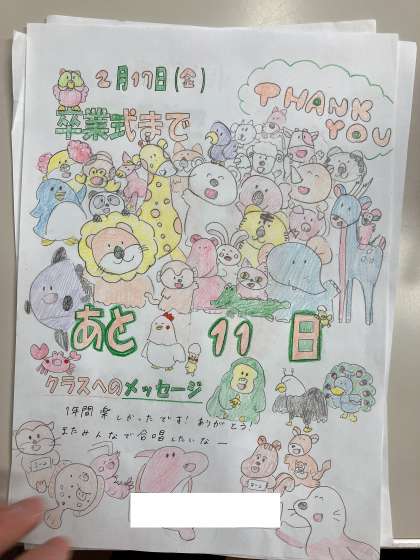 2月17日(金)
THANK YOU
卒業式まで
あと 11 日
クラスへのメッセージ
1年間楽しかったです！ありがとう！
またみんなで合唱したいなー